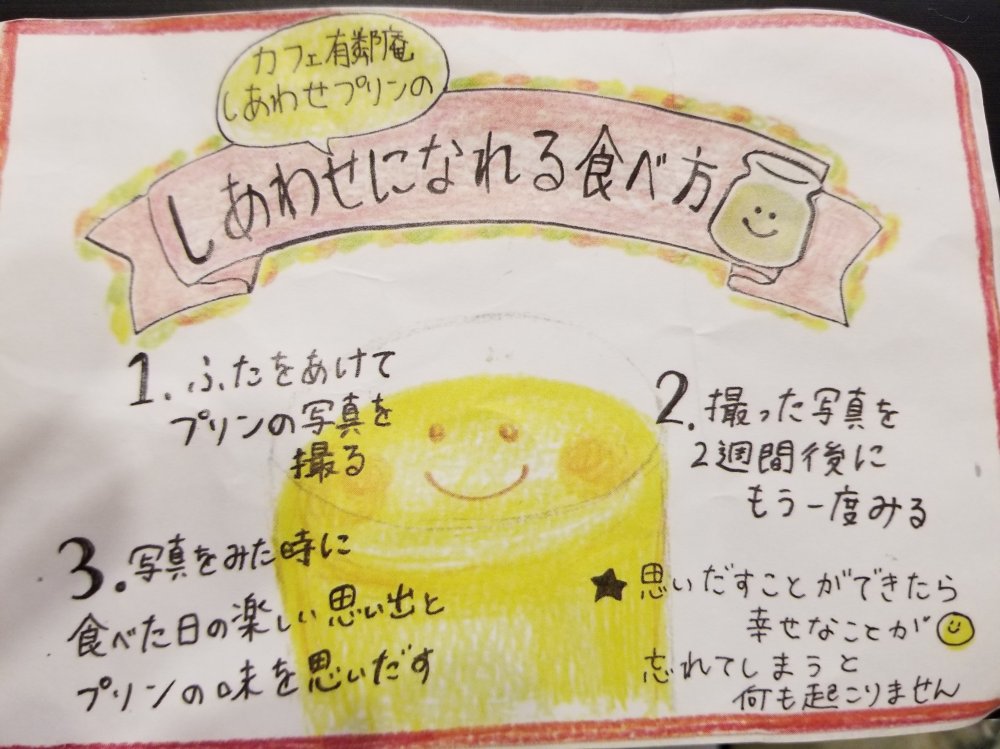 カフェ有鄰庵
しあわせプリンの
しあわせになれる食べ方
1.ふたをあけて
プリンの写真を
撮る
2.撮った写真を
2週間後に
もう一度みる
3.写真をみた時に
食べた日の楽しい思い出と
プリンの味を思いだす
★思いだすことができたら
幸せなことが
忘れてしまうと
何も起こりません